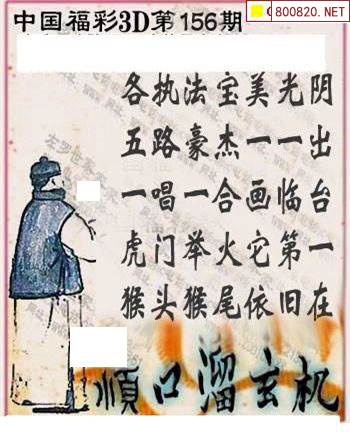 中国福彩3D第156期
800820.NET
各执法宝美光阴
五路豪杰一一出
一唱一合画临台
虎门举火它第一
猴头猴尾依旧在
顺口溜玄机